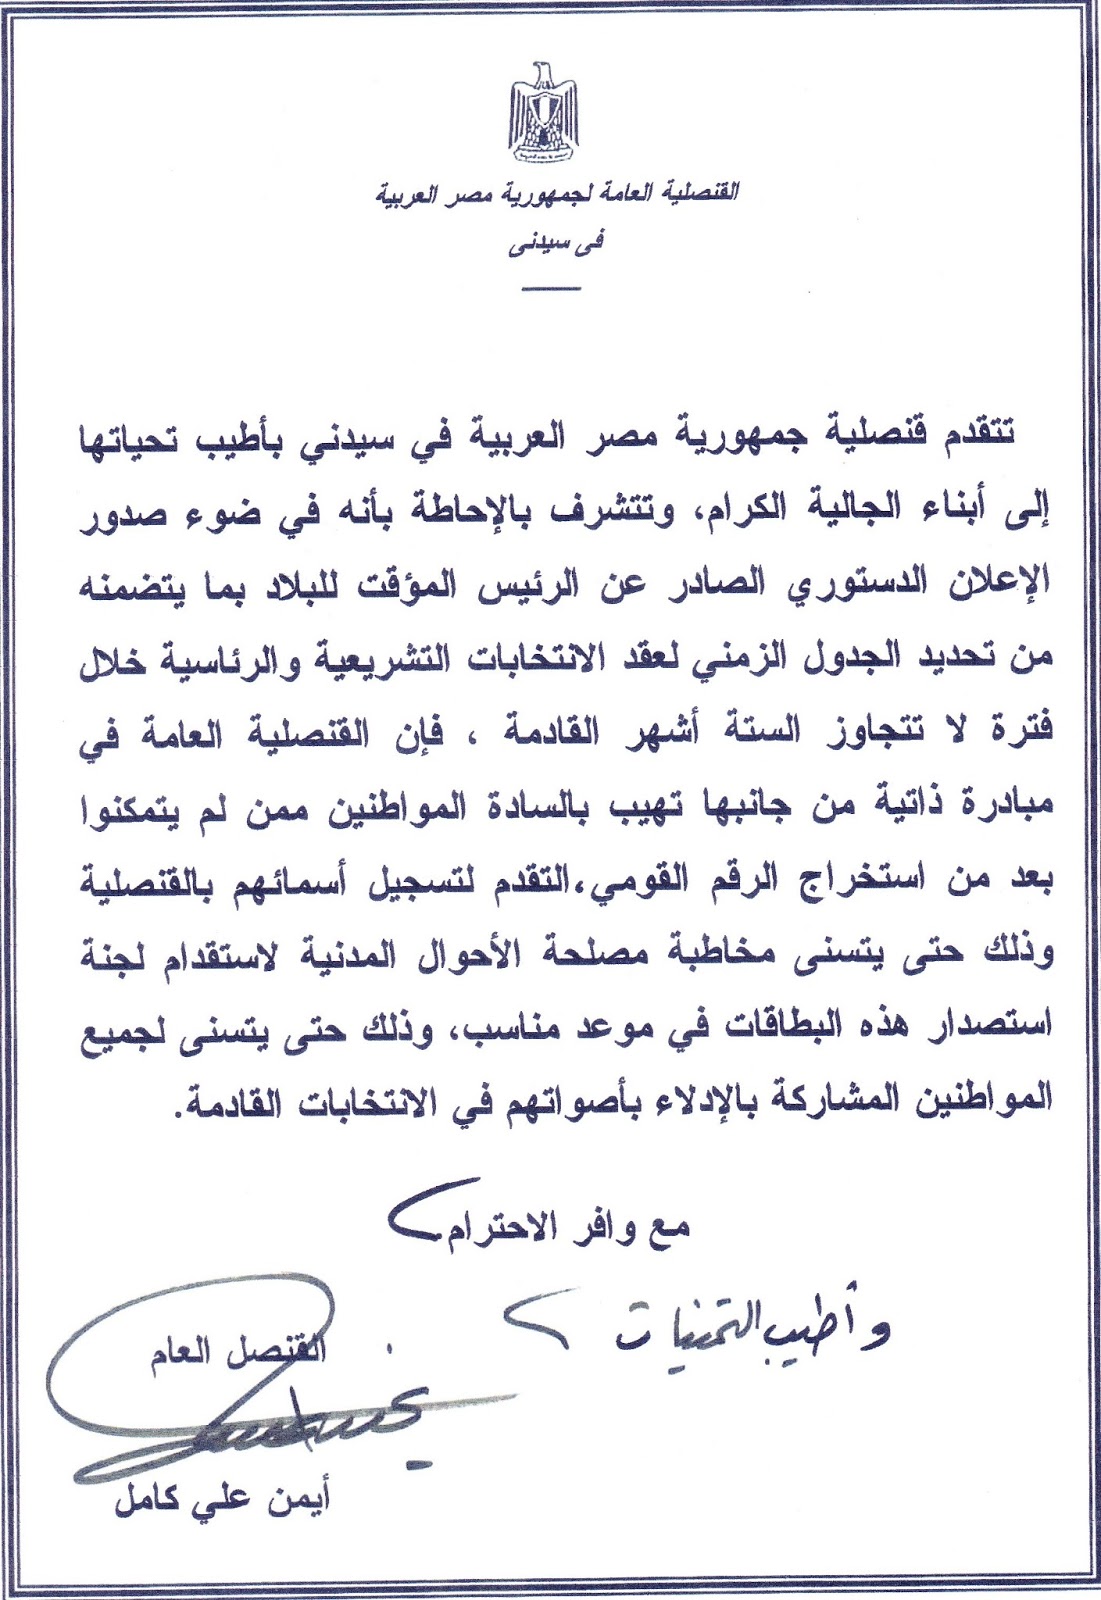 القنصلية العامة لجمهورية مصر العربية
فى سيدنى
تتقدم قنصلية جمهورية مصر العربية في سيدني بأطيب تحياتها
إلى أبناء الجالية الكرام، وتتشرف بالإحاطة بأنه في ضوء صدور
الإعلان الدستوري الصادر عن الرئيس المؤقت للبلاد بما يتضمنه
من تحديد الجدول الزمني لعقد الانتخابات التشريعية والرئاسية خلال
فترة لا تتجاوز الستة أشهر القادمة ، فإن القنصلية العامة في
مبادرة ذاتية من جانبها تهيب بالسادة المواطنين ممن لم يتمكنوا
بعد من استخراج الرقم القومي،التقدم لتسجيل أسمائهم بالقنصلية
وذلك حتى يتسنى مخاطبة مصلحة الأحوال المدنية لاستقدام لجنة
استصدار هذه البطاقات في موعد مناسب، وذلك حتى يتسنى لجميع
المواطنين المشاركة بالإدلاء بأصواتهم في الانتخابات القادمة.
مع وافر الاحترام
وأطيب التمنيات
القنصل العام
أيمن علي كامل